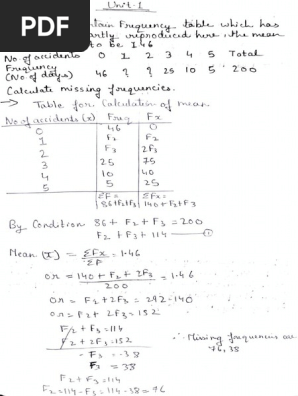 PDF
Unit-1
tain Frequency table which has
artly reproduced here, the mean
to be 1.46
No of accidents 0 1 2 3 4 5 Total
Frequency
(No of days) 46 ? ? 25 10 5 200
Calculate missing frequencies.
→ Table for Calculation of mean
No of accidents (x) Freq Fx
0 46 0
1 F2 F2
2 F3 2F3
3 25 75
4 10 40
5 5 25
ΣF= ΣFx=
86+F2+F3 140+F2+F3
By Condition 86+ F2 + F3 = 200
F2 + F3 + 114 — 1
Mean (x̄) = ΣFx = 1.46
ΣF
or = 140 + F2 + 2F3 = 1.46
200
or = F2 + 2F3 = 292-140
or = F2 + 2F3 = 152
F2 + F3 = 114
F2 + 2F3 = 152
- F3 = -38
F3 = 38
∴ Missing frequencies are
76, 38
F2 + F3 = 114
F2 = 114 - F3 = 114 - 38 = 76